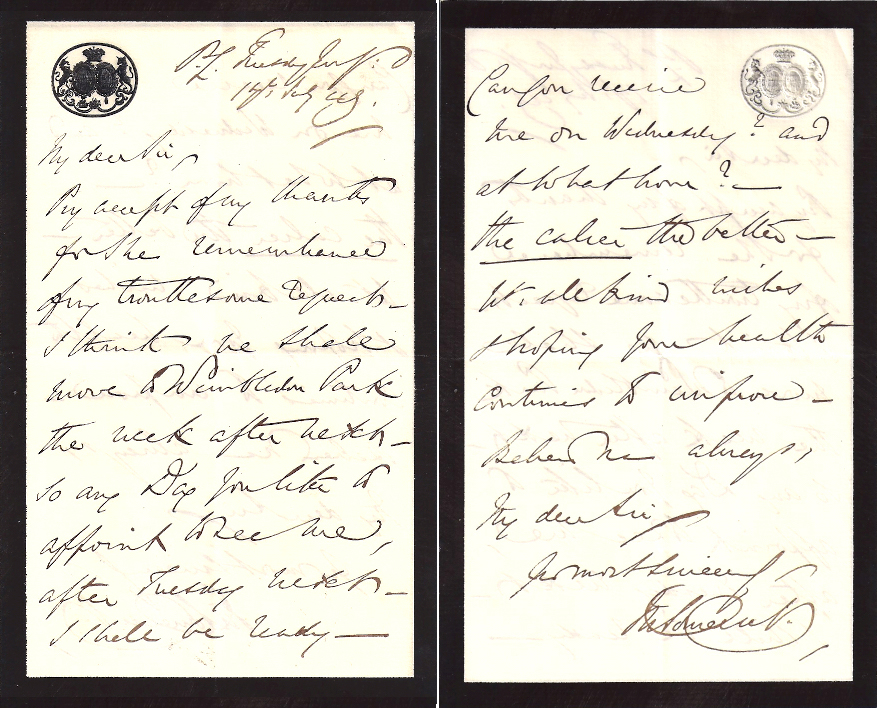 Tuesday
My dear Sir,
Pry accept of my thanks
for the remembrance
of my troublesome request —
I think we shall
move to Wimbledon Park
the week after next —
so any Day you like to
appoint to see me,
after Tuesday next —
I shall be ready —
Can you receive
me on Wednesday? and
at what hour? —
the earlier the better —
W. all kind wishes
& hoping your health
continues to improve —
Believe me always,
My dear Sir
Yr most sincerely